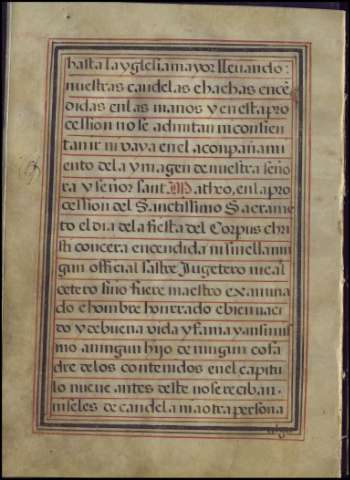 hasta la yglesia mayor lleuando:
nuestras candelas e hachas encē
didas en las manos y en esta pro
cession no se admitan ni consien
tan ir ni vaya en el aconpañami
ento de la ymagen de nuestra seño
ra y señor sant Matheo, en la pro
cession del Sanctissimo Sacrame
to el dia de la fiesta del Corpus chri
sti con cera encendida ni sin ella nin
gun official sastre Jugetero ni cal
cetero sino fuere maestro examina
do e hombre honrrado e bien naci
do y de buena vida y fama y ansimis
mo a ningun hijo de ningun cofa
dre de los contenidos en el capitu
lo nueue antes deste no se reciban
ni se les de candela ni a otra persona